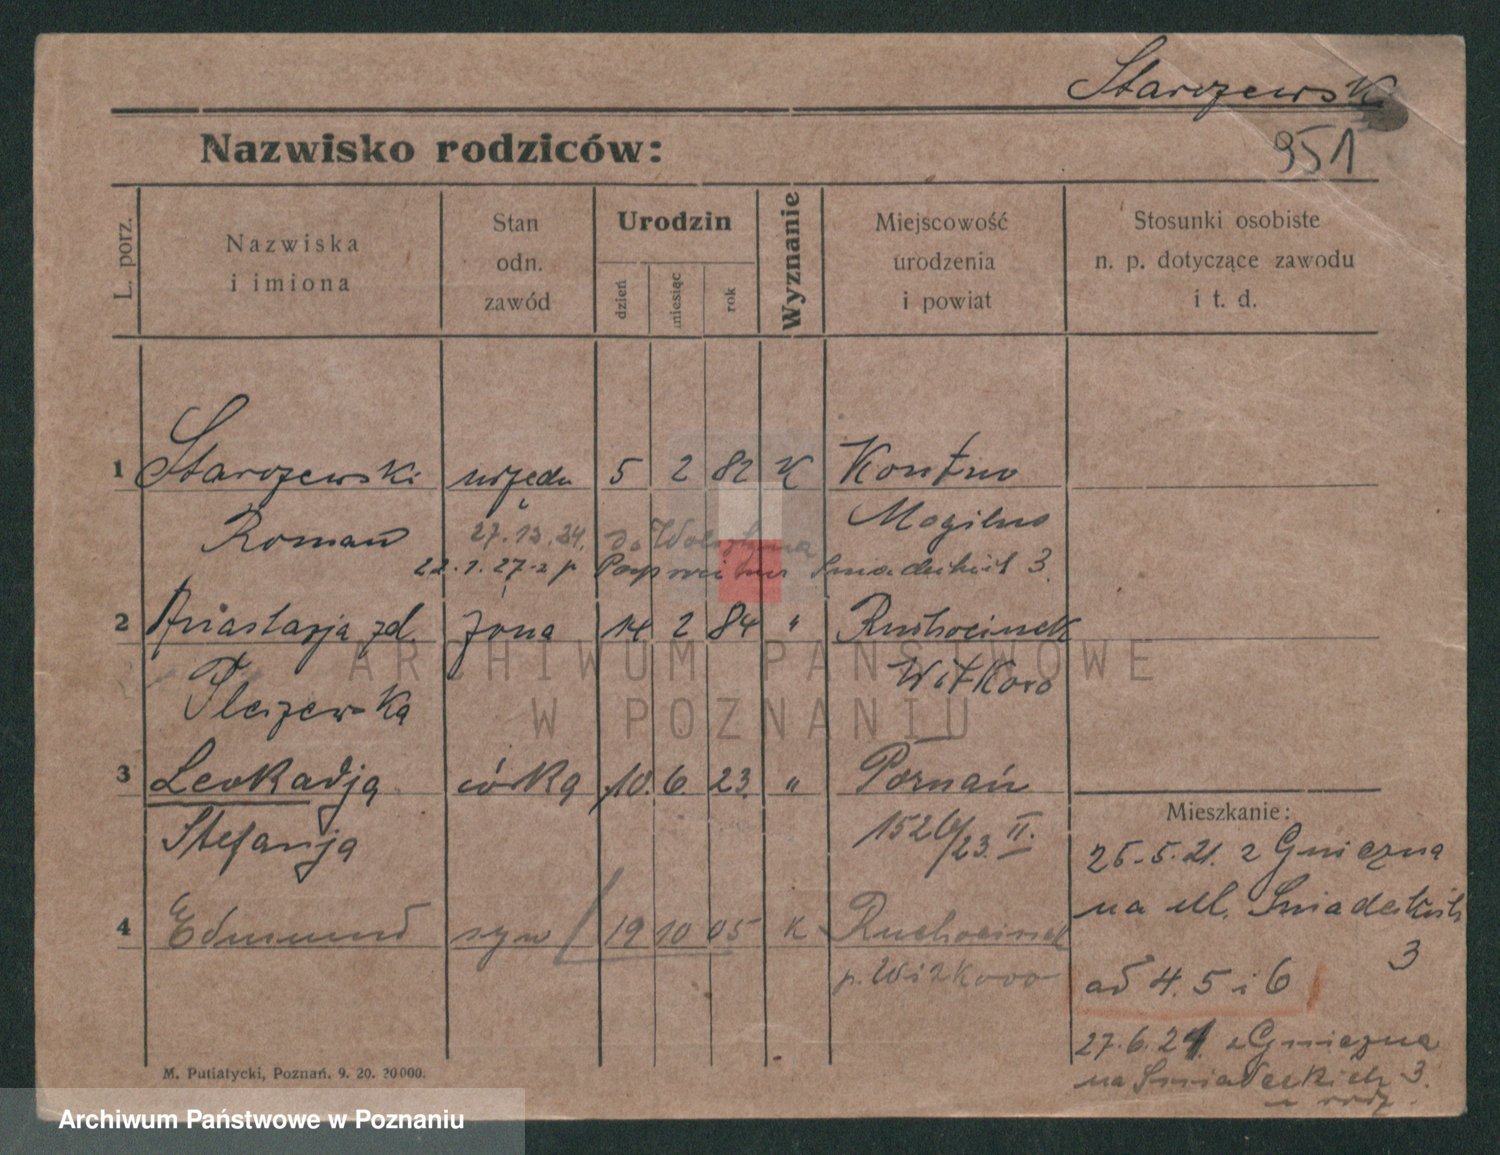 Starczewski
951
Nazwisko rodziców:
L. porz.
Nazwiska
i imiona
Stan
odn.
zawód
Urodzin
dzień
miesiąc
rok
Wyznanie
Miejscowość
urodzenia
i powiat
Stosunki osobiste
n. p. dotyczące zawodu
i t. d.
1 Starczewski urzędn 5 2 82 K
Roman Mogilno
27.12.24. do Wolsztyna
22.1.27 z p Śniadeckich 3.
2 Anastazja zd. żona 14 2 84 " Ruchocinek
Pleszewska Witkowo
3 Leokadja córka 10. 6 23. " Poznań
Stefanja 1526/23. II.
Mieszkanie:
25.5.21. z Gniezna
na ul. Śniadeckich
3
4 Edmund syn 19 10 05 K Ruchocinek
p. Witkowo
ad 4. 5 i 6
27.6.21. z Gniezna
na Śniadeckich 3.
u rodz.
M. Putiatycki, Poznań. 9. 20. 20000.
ARCHIWUM PAŃSTWOWE
W POZNANIU
Archiwum Państwowe w Poznaniu